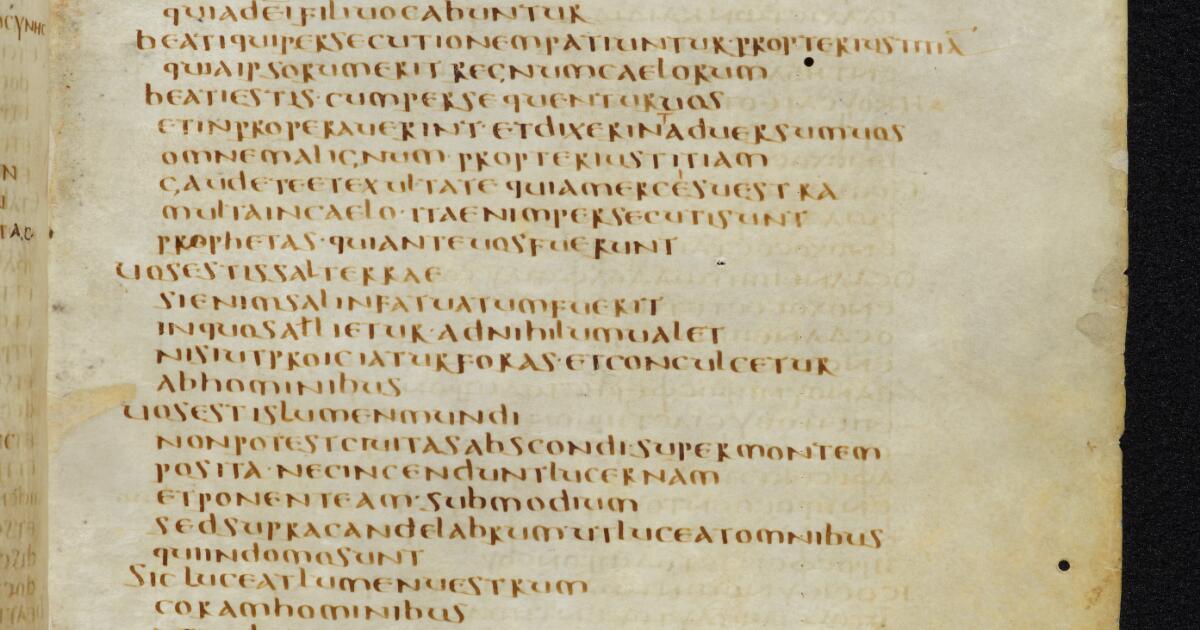 quiadeifiliuocabuntur
beatiquipersecutionempatiuntur·propteriustitiā
quiaipsorumerit regnumcaelorum
beatiestis·cumpersequenturuos
etinproperauerint·etdixerintaduersumuos
omnemalignum·propteriustitiam
gaudeteetexultate quiamercesuestra
multaincaelo·itaenimpersecutisunt
prophetas·quianteuosfuerunt
uosestissalterrae
sienimsalinfatuatumfuerit
inquosallietur·adnihilumualet
nisiutproiciaturforas·etconculcetur
abhominibus
uosestislumenmundi
nonpotestciuitasabscondi·supermontem
posita·necincenduntlucernam
etponenteam·submodium
sedsupracandelabrumutluceatomnibus
quiindomosunt
sicluceatlumenuestrum
coramhominibus